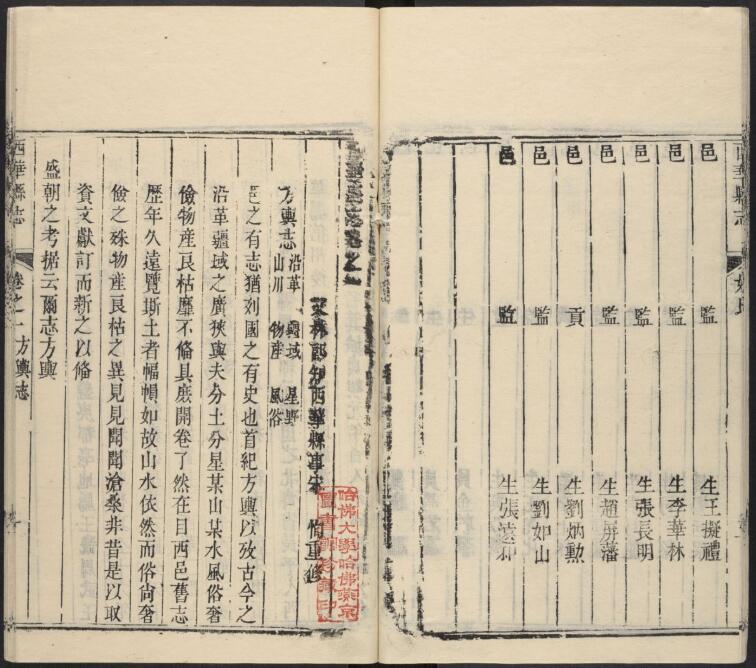 邑監生王擬禮
邑監生李華林
邑監生張長明
邑監生趙屏藩
邑貢生劉炳勲
邑監生劉如山
邑監生張遠
西華縣志卷之一
文林郎知西華縣事宋恂重修
方輿志 沿革 疆域 星野 山川 物產 風俗
邑之有志猶列國之有史也首紀方輿以攷古今之
沿革疆域之廣狹與夫分土分星某山某水風俗奢
儉物産良枯靡不脩具庶開卷了然在目西邑舊志
歴年久遠覽斯土者幅幀如故山水依然而俗尙奢
儉之殊物産良枯之異見見聞聞滄桑非昔是以取
資文獻訂而新之以脩
盛朝之考据云爾志方輿
西華縣志 卷之一 方輿志
哈佛大學哈佛燕京圖書館珍藏印